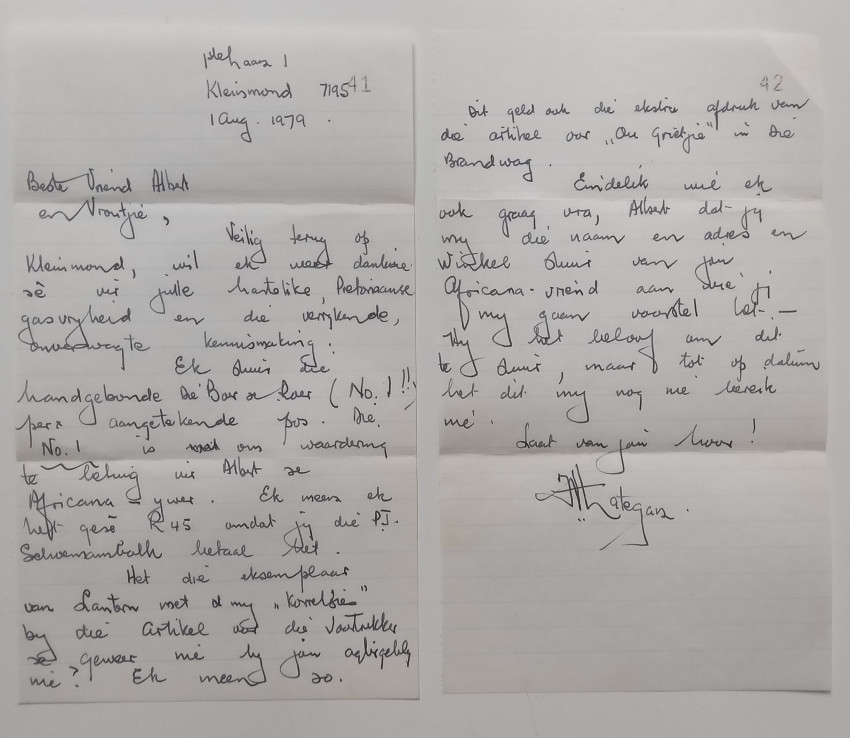 Kleinmond 7195
41
1 Aug. 1979.
Beste Vriend Albert
en Vroutjie,
Veilig terug op
Kleinmond, wil ek weer dankie
sê vir julle hartelike, Pretoriaanse
gasvryheid en die verrykende,
onverwagte kennismaking.
Ek stuur die
handgebonde Die Boer se Roer (No. 1!!)
per aangetekende pos. Die
No. 1 is om waardering
te betuig vir Albert se
Africana-ywer. Ek meen ek
het gesê R45 omdat jy die P.J.
Schoemanbalk betaal het.
Het die eksemplaar
van Lantern met al my „Korreltjies"
by die artikel oor die Voortrekker
se geweer nie by jou agtergebly
nie? Ek meen so.
42
Dit geld ook die ekstra afdruk van
die artikel oor „Ou Grietjie" in Die
Brandwag.
Eindelik wil ek
ook graag vra, Albert dat jy
my die naam en adres en
winkel stuur van jou
Africana-vriend aan wie jy
my gaan voorstel het.—
Hy het beloof om dit
te stuur, maar tot op datum
het dit my nog nie bereik
nie.
Laat van jou hoor!